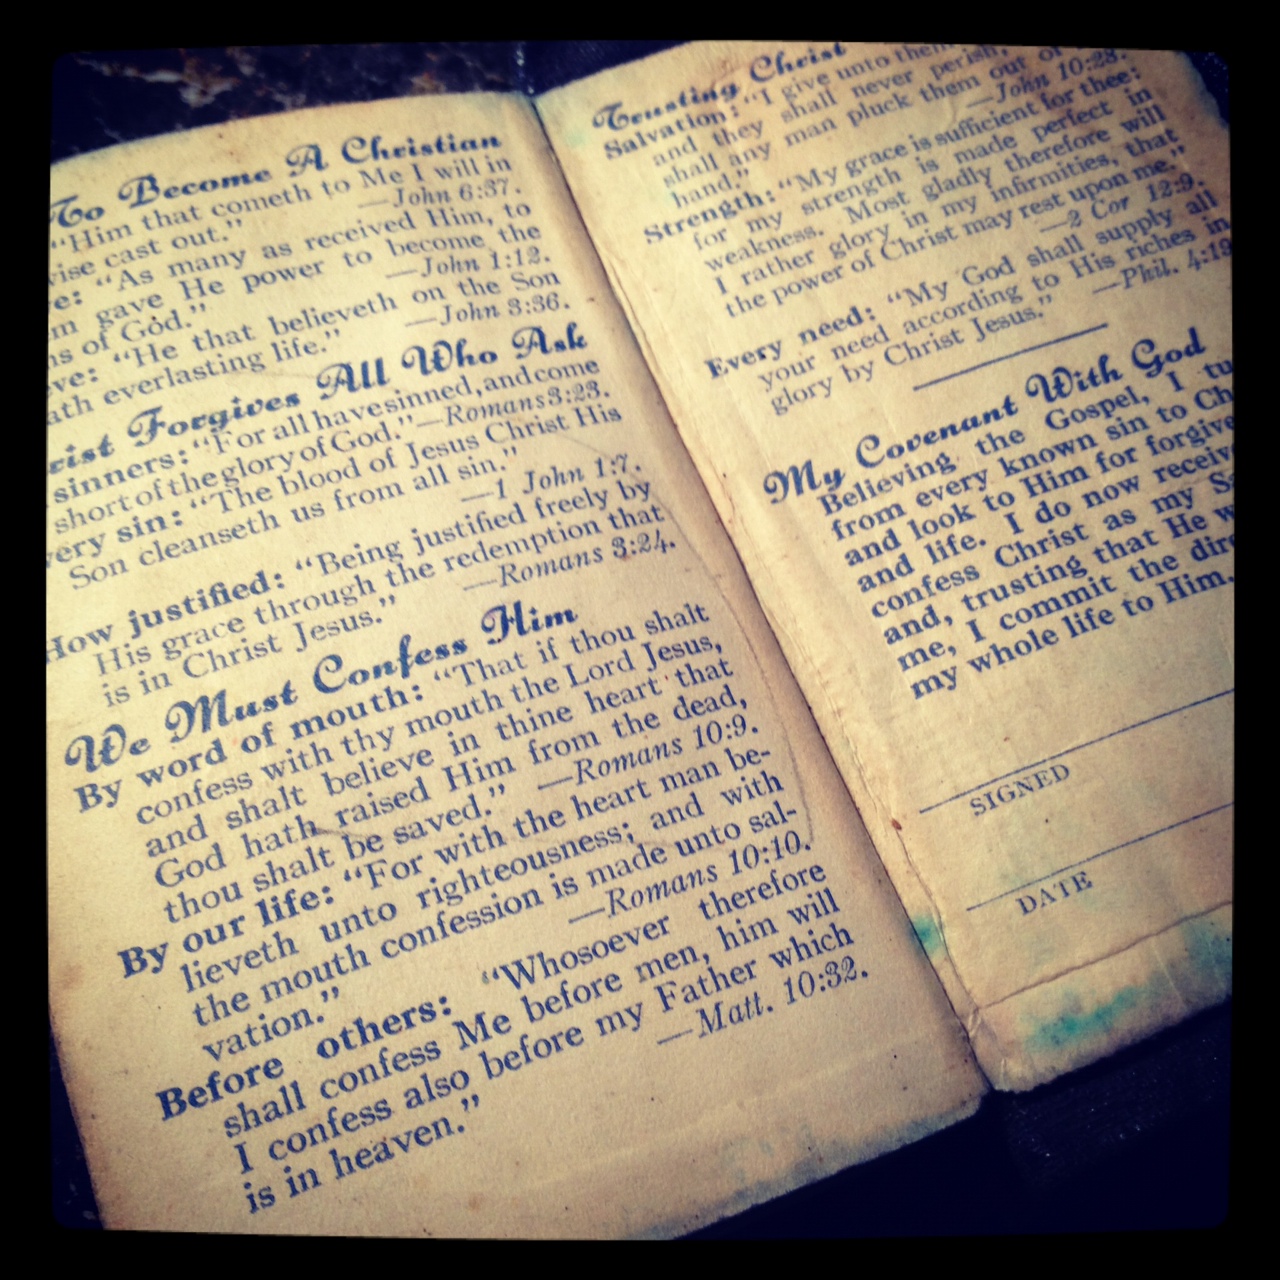 To Become A Christian
"Him that cometh to Me I will in
wise cast out."
—John 6:37.
"As many as received Him, to
gave He power to become the
of God."
—John 1:12.
"He that believeth on the Son
everlasting life."
—John 3:36.
Forgives All Who Ask
sinners: "For all have sinned, and come
short of the glory of God."—Romans 3:23.
sin: "The blood of Jesus Christ His
Son cleanseth us from all sin."
—1 John 1:7.
How justified: "Being justified freely by
His grace through the redemption that
is in Christ Jesus."
—Romans 3:24.
We Must Confess Him
By word of mouth: "That if thou shalt
confess with thy mouth the Lord Jesus,
and shalt believe in thine heart that
God hath raised Him from the dead,
thou shalt be saved." —Romans 10:9.
By our life: "For with the heart man be-
lieveth unto righteousness; and with
the mouth confession is made unto sal-
vation."
—Romans 10:10.
Before others: "Whosoever therefore
shall confess Me before men, him will
I confess also before my Father which
is in heaven."
—Matt. 10:32.
Trusting Christ
Salvation: "I give unto them
and they shall never perish,
shall any man pluck them out of
hand."
—John 10:28.
Strength: "My grace is sufficient for thee:
for my strength is made perfect in
weakness. Most gladly therefore will
I rather glory in my infirmities, that
the power of Christ may rest upon me."
—2 Cor 12:9.
Every need: "My God shall supply all
your need according to His riches in
glory by Christ Jesus."
—Phil. 4:19
My Covenant With God
Believing the Gospel, I tu
from every known sin to Ch
and look to Him for forgive
and life. I do now receive
confess Christ as my Sa
and, trusting that He w
me, I commit the dire
my whole life to Him.
SIGNED
DATE